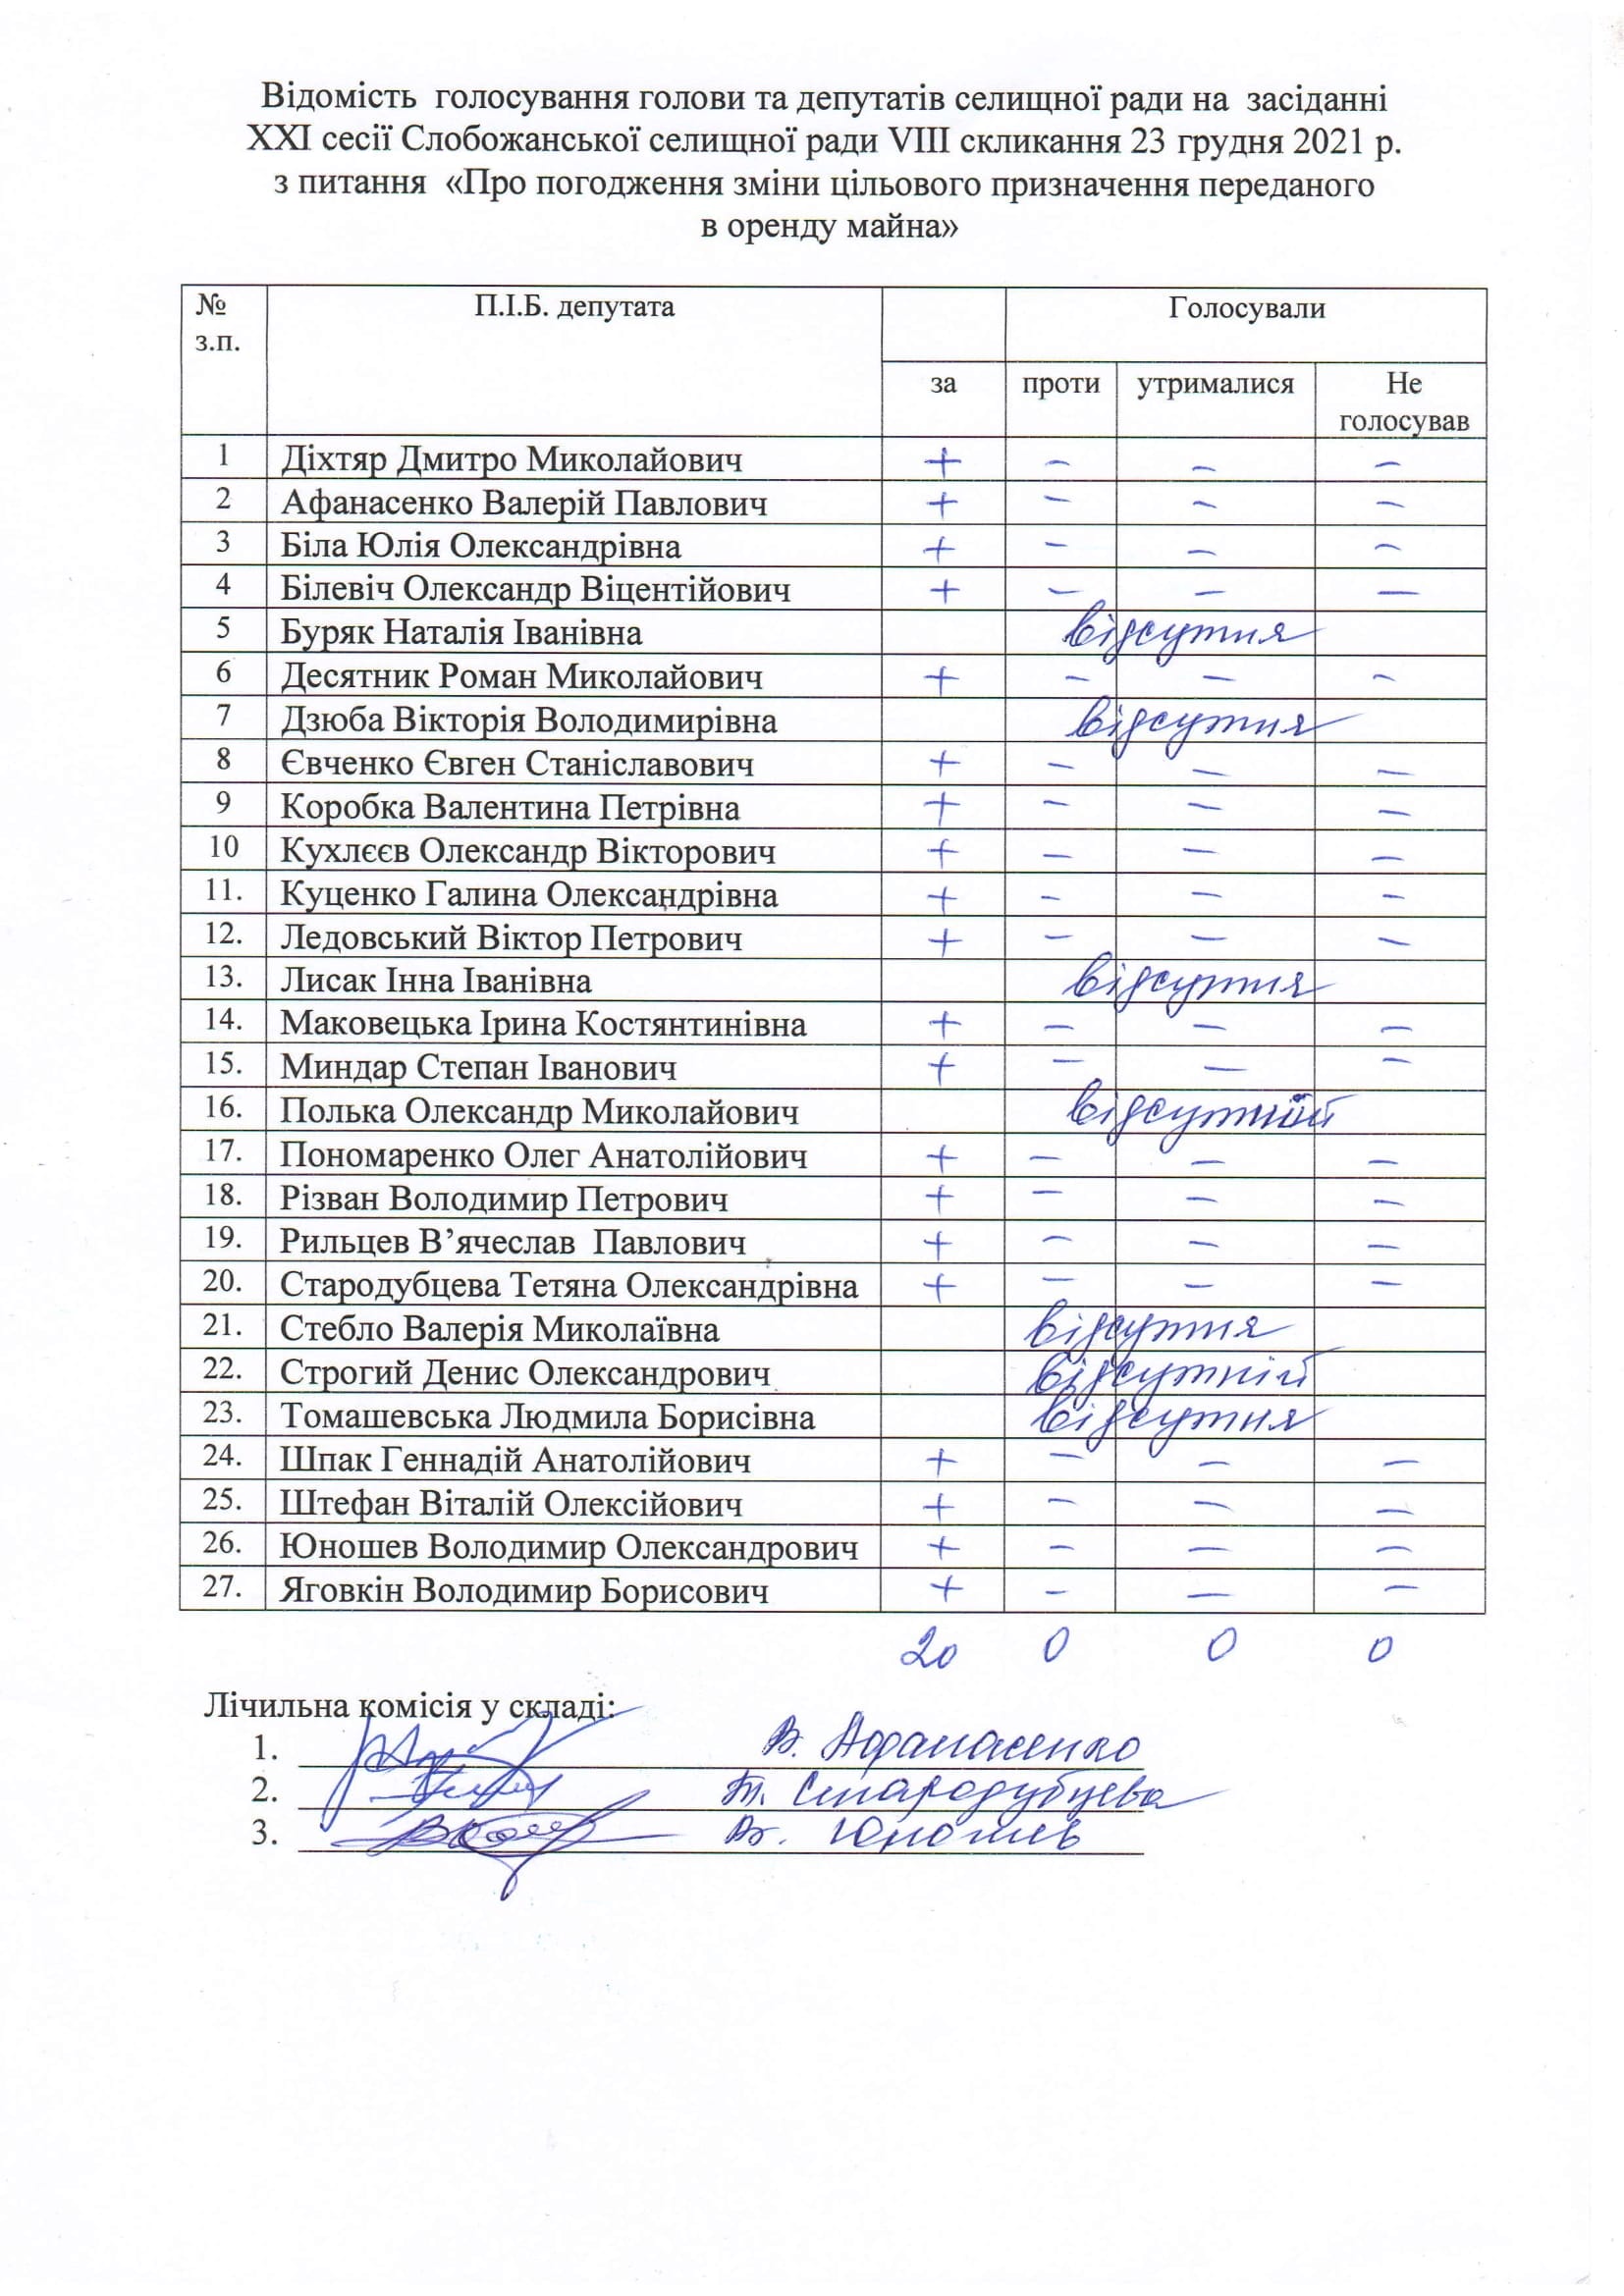 Відомість голосування голови та депутатів селищної ради на засіданні
XXI сесії Слобожанської селищної ради VIII скликання 23 грудня 2021 р.
з питання «Про погодження зміни цільового призначення переданого
в оренду майна»
№ з.п. П.І.Б. депутата Голосували
за проти утрималися Не голосував
1 Діхтяр Дмитро Миколайович + – – –
2 Афанасенко Валерій Павлович + – – –
3 Біла Юлія Олександрівна + – – –
4 Білевіч Олександр Віцентійович + – – –
5 Буряк Наталія Іванівна відсутня
6 Десятник Роман Миколайович + – – –
7 Дзюба Вікторія Володимирівна відсутня
8 Євченко Євген Станіславович + – – –
9 Коробка Валентина Петрівна + – – –
10 Кухлєєв Олександр Вікторович + – – –
11. Куценко Галина Олександрівна + – – –
12. Ледовський Віктор Петрович + – – –
13. Лисак Інна Іванівна відсутня
14. Маковецька Ірина Костянтинівна + – – –
15. Миндар Степан Іванович + – – –
16. Полька Олександр Миколайович відсутній
17. Пономаренко Олег Анатолійович + – – –
18. Різван Володимир Петрович + – – –
19. Рильцев В’ячеслав Павлович + – – –
20. Стародубцева Тетяна Олександрівна + – – –
21. Стебло Валерія Миколаївна відсутня
22. Строгий Денис Олександрович відсутній
23. Томашевська Людмила Борисівна відсутня
24. Шпак Геннадій Анатолійович + – – –
25. Штефан Віталій Олексійович + – – –
26. Юношев Володимир Олександрович + – – –
27. Яговкін Володимир Борисович + – – –
20 0 0 0
Лічильна комісія у складі:
1. В. Афанасенко
2. Т. Стародубцева
3. Юношев